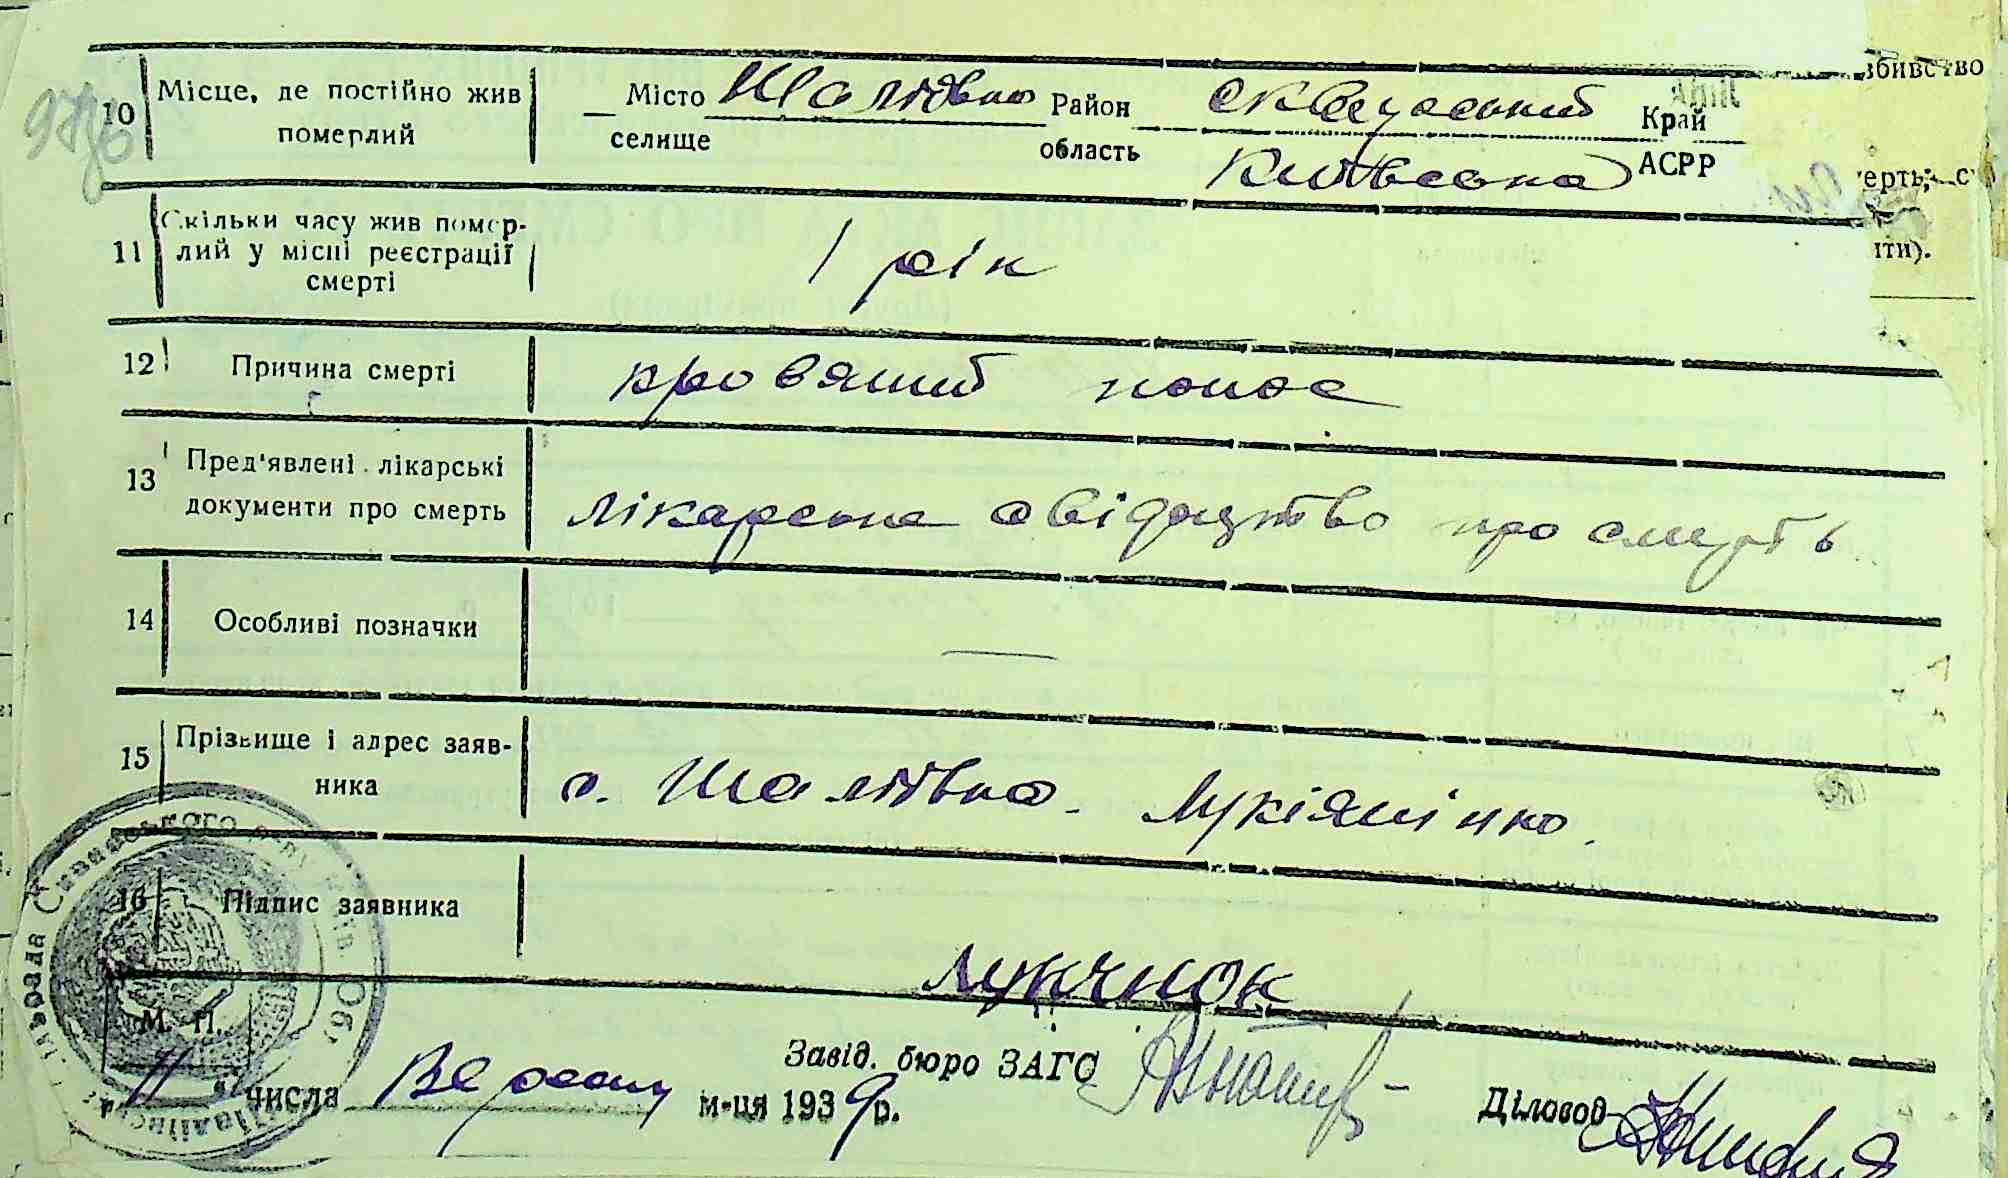 збивство
10 Місце, де постійно жив Місто Шаліївка Район Сквирський Край
померлий селище область Київська АСРР
ерть; с
11 Скільки часу жив помер-
лий у місці реєстрації 1 рік
смерті
ити).
12 Причина смерті кров'яний понос
13 Пред'явлені лікарські
документи про смерть лікарське свідоцтво про смерть
14 Особливі позначки —
15 Прізвище і адрес заяв-
ника с. Шаліївка. Лукіянінко.
16 Підпис заявника
М. П.
Завід. бюро ЗАГС
11 числа Вересня м-ця 1939 р. Діловод